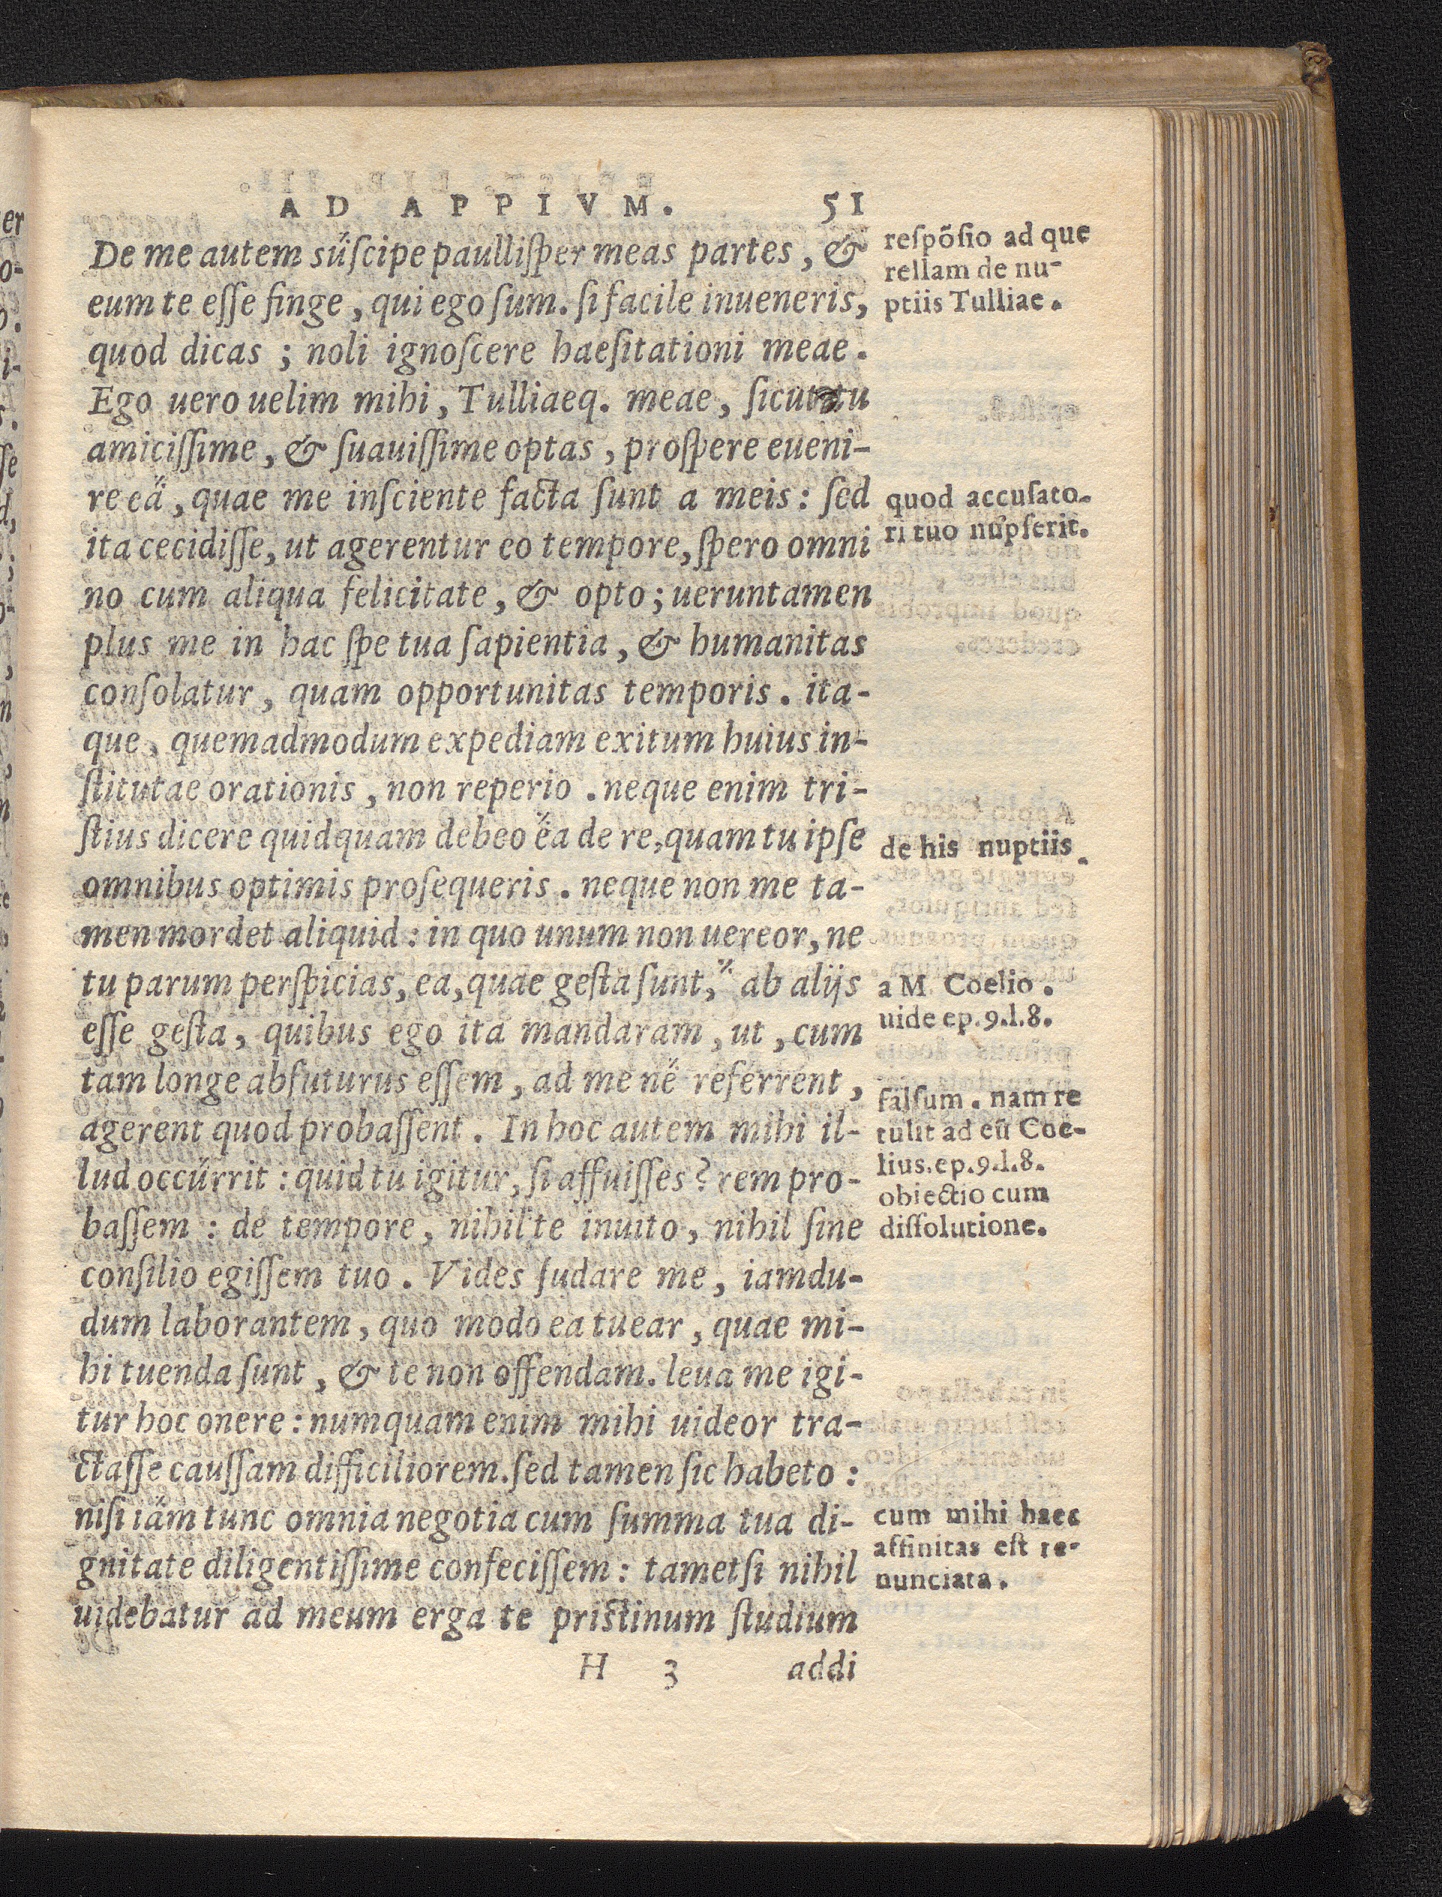 AD APPIVM. 51
De me autem sűſcipe paulliſper meas partes, &
eum te eſſe finge, qui ego ſum. ſi facile inueneris,
quod dicas; noli ignoſcere haeſitationi meae.
Ego uero uelim mihi, Tulliaeq. meae, ſicut tu
amiciſſime, & ſuauiſſime optas, proſpere eueni-
re eä, quae me inſciente facta ſunt a meis: ſed
ita cecidiſſe, ut agerentur eo tempore, ſpero omni
no cum aliqua felicitate, & opto; ueruntamen
plus me in hac ſpe tua ſapientia, & humanitas
conſolatur, quam opportunitas temporis. ita-
que, quemadmodum expediam exitum huius in-
ſtitutae orationis, non reperio. neque enim tri-
ſtius dicere quidquam debeo ëa de re, quam tu ipſe
omnibus optimis proſequeris. neque non me ta-
men mordet aliquid: in quo unum non uereor, ne
tu parum perſpicias, ea, quae geſta ſunt,ʺ ab alijs
eſſe geſta, quibus ego ita mandaram, ut, cum
tam longe abfuturus eſſem, ad me në referrent,
agerent quod probaſſent. In hoc autem mihi il-
lud occűrrit: quid tu igitur, ſi affuiſſes? rem pro-
baſſem: de tempore, nihil te inuito, nihil ſine
conſilio egiſſem tuo. Vides ſudare me, iamdu-
dum laborantem, quo modo ea tuear, quae mi-
hi tuenda ſunt, & te non offendam. leua me igi-
tur hoc onere: numquam enim mihi uideor tra-
ctaſſe cauſſam difficiliorem. ſed tamen ſic habeto:
niſi iäm tunc omnia negotia cum ſumma tua di-
gnitate diligentiſſime confeciſſem: tametſi nihil
uidebatur ad meum erga te priſtinum ſtudium
H 3 addi
reſpõſio ad que
rellam de nu-
ptiis Tulliae.
quod accuſato-
ri tuo nupſerit.
de his nuptiis.
a M. Coelio.
uide ep.9.l.8.
falſum. nam re
tulit ad eũ Coe-
lius.ep.9.l.8.
obiectio cum
diſſolutione.
cum mihi haec
affinitas eſt re-
nunciata.